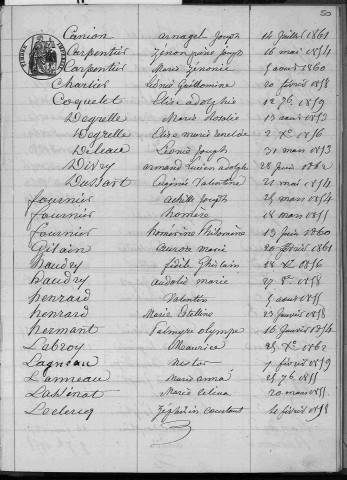 50
Canion arnaget Joseph 14 Juillet 1861
Carpentier Zénon 16 mai 1854
Carpentier Marie Zénonie 5 aout 1860
Charlier Léonie Guillomine 20 février 1858
Coquelet Elise adolphie 12 7b. 1859
Degrelle Marie Rosalie 13 aout 1853
Degrelle Elise marie 2 Xbre 1856
Deleaux Léonie Joseph 31 mars 1853
Divry armand Lucien adolphe 28 Juin 1862
Dussart Eugénie Valentine 21 mai 1854
fournier achille Joseph 25 mars 1854
fournier homère 18 mars 1855
fournier homérine Philomène 13 Juin 1860
Gilain aurore marie 20 février 1861
haudry fidèle Ghislain 18 Xbre 1856
haudry marie 27 8bre 1858
henrard Valentin 5 aout 1855
henrard Marie Esteline 23 Janvier 1858
hermant Palmyre olympe 16 Janvier 1854
Labroy Maurice 25 Xbre 1862
Lagneau nestor 7 février 1859
Lanneau Marie anna 25 7b 1855
Marie 20 mars 1855
Leclercq Zéphirin constant 20 février 1858